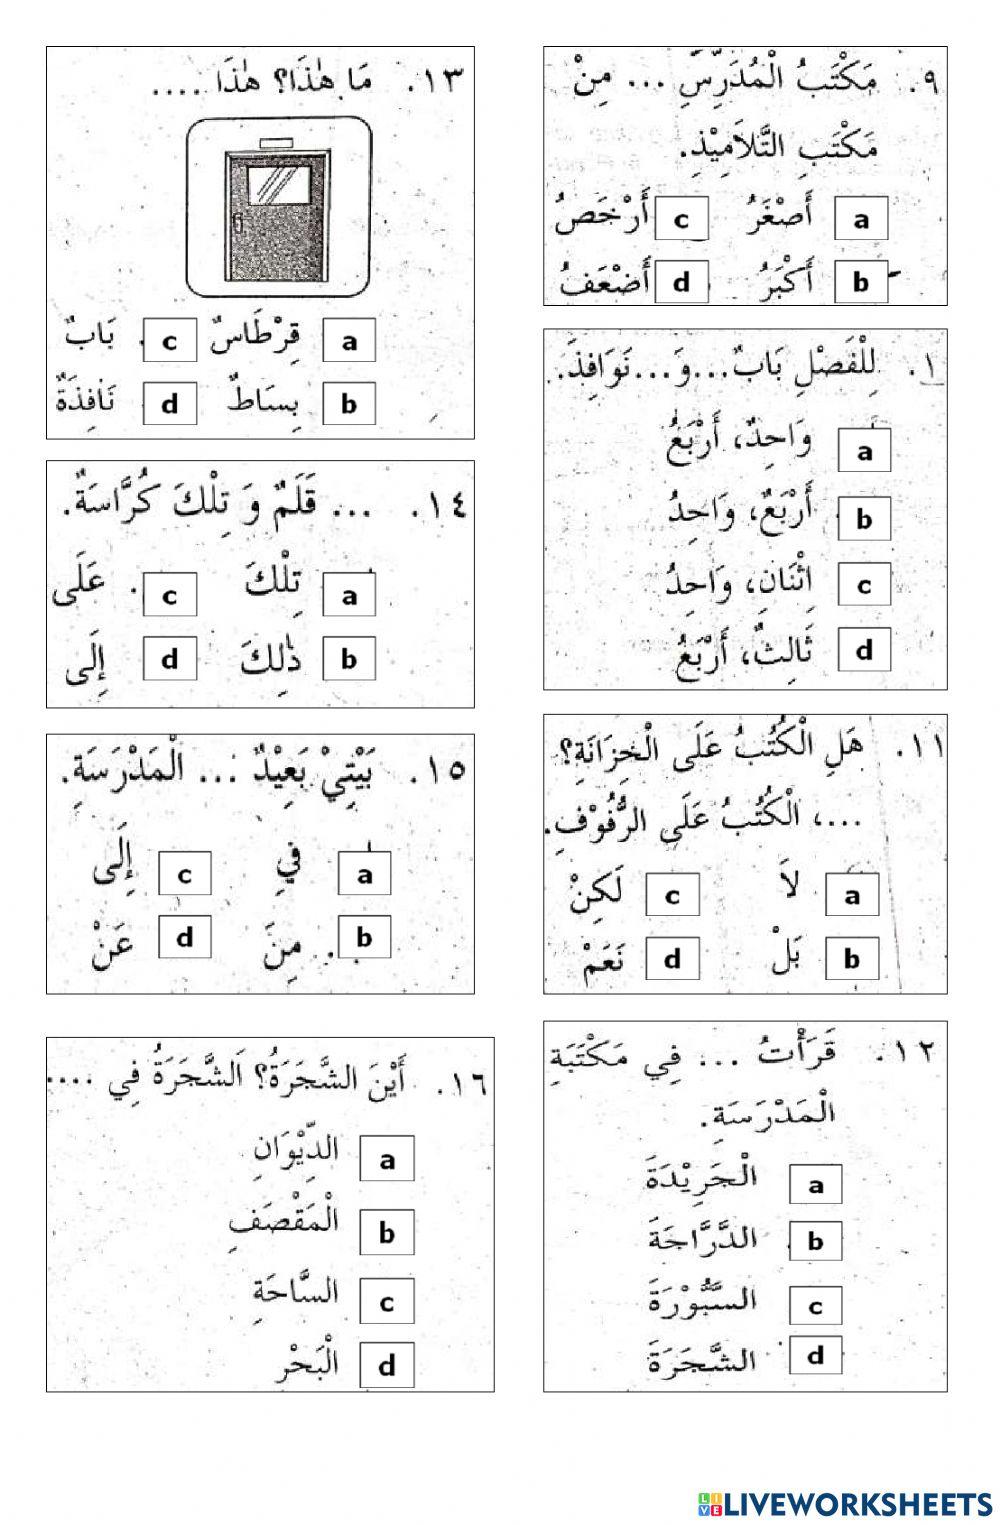 ٩. مَكْتَبُ الْمُدَرِّسِ ... مِنْ
مَكْتَبِ التَّلاَمِيْذِ.
a أَصْغَرُ c أَرْخَصُ
b أَكْبَرُ d أَضْعَفُ
١. لِلْفَصْلِ بَابٌ...وَ...نَوَافِذَ.
a وَاحِدٌ، أَرْبَعُ
b أَرْبَعٌ، وَاحِدُ
c اِثْنَانِ، وَاحِدُ
d ثَالِثٌ، أَرْبَعُ
١١. هَلِ الْكُتُبُ عَلَى الْخِزَانَةِ؟
...، الْكُتُبُ عَلَى الرُّفُوْفِ.
a لاَ c لَكِنْ
b بَلْ d نَعَمْ
١٢. قَرَأْتُ ... فِي مَكْتَبَةِ
الْمَدْرَسَةِ.
a الْجَرِيْدَةَ
b الدَّرَّاجَةَ
c السَّبُّوْرَةَ
d الشَّجَرَةَ
١٣. مَا هٰذَا؟ هٰذَا ....
a قِرْطَاسٌ c بَابٌ
b بِسَاطٌ d نَافِذَةٌ
١٤. ... قَلَمٌ وَ تِلْكَ كُرَّاسَةٌ.
a تِلْكَ c عَلَى
b ذٰلِكَ d إِلَى
١٥. بَيْتِيْ بَعِيْدٌ ... الْمَدْرَسَةِ.
a فِي c إِلَى
b مِنَ d عَنْ
١٦. أَيْنَ الشَّجَرَةُ؟ اَلشَّجَرَةُ فِي ....
a الدِّيْوَانِ
b الْمَقْصَفِ
c السَّاحَةِ
d الْبَحْرِ
LIVEWORKSHEETS